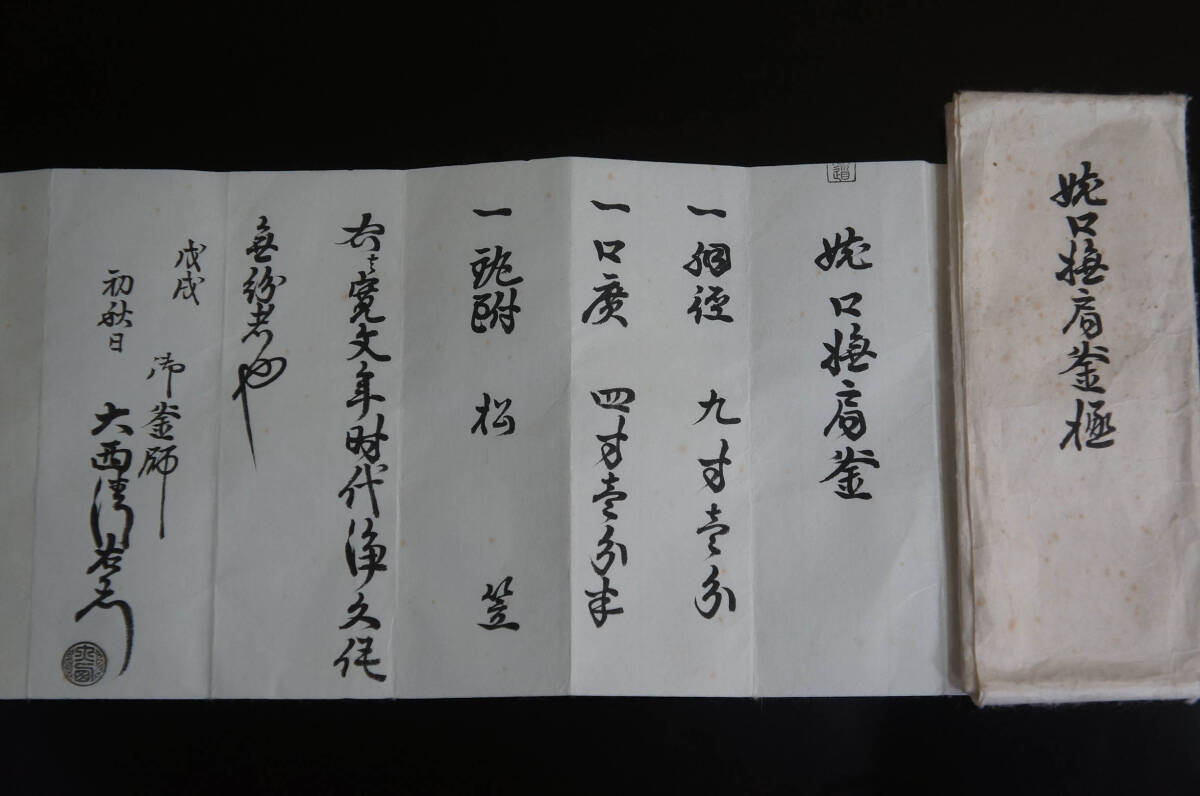 姥口撫肩釜極
姥口撫肩釜
一 胴徑 九寸壱分
一 口廣 四寸壱分半
一 鐶附 松笠
右者寛文年时代浄久作
無紛者也
戊戌
初秋日
御釜師
大西清右衛門